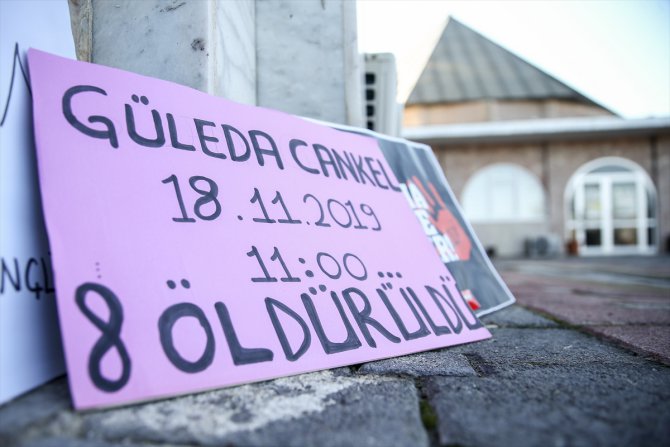 GÜLEDA CANKEL
18.11.2019
11:00
8 ÖLDÜRÜLDÜ